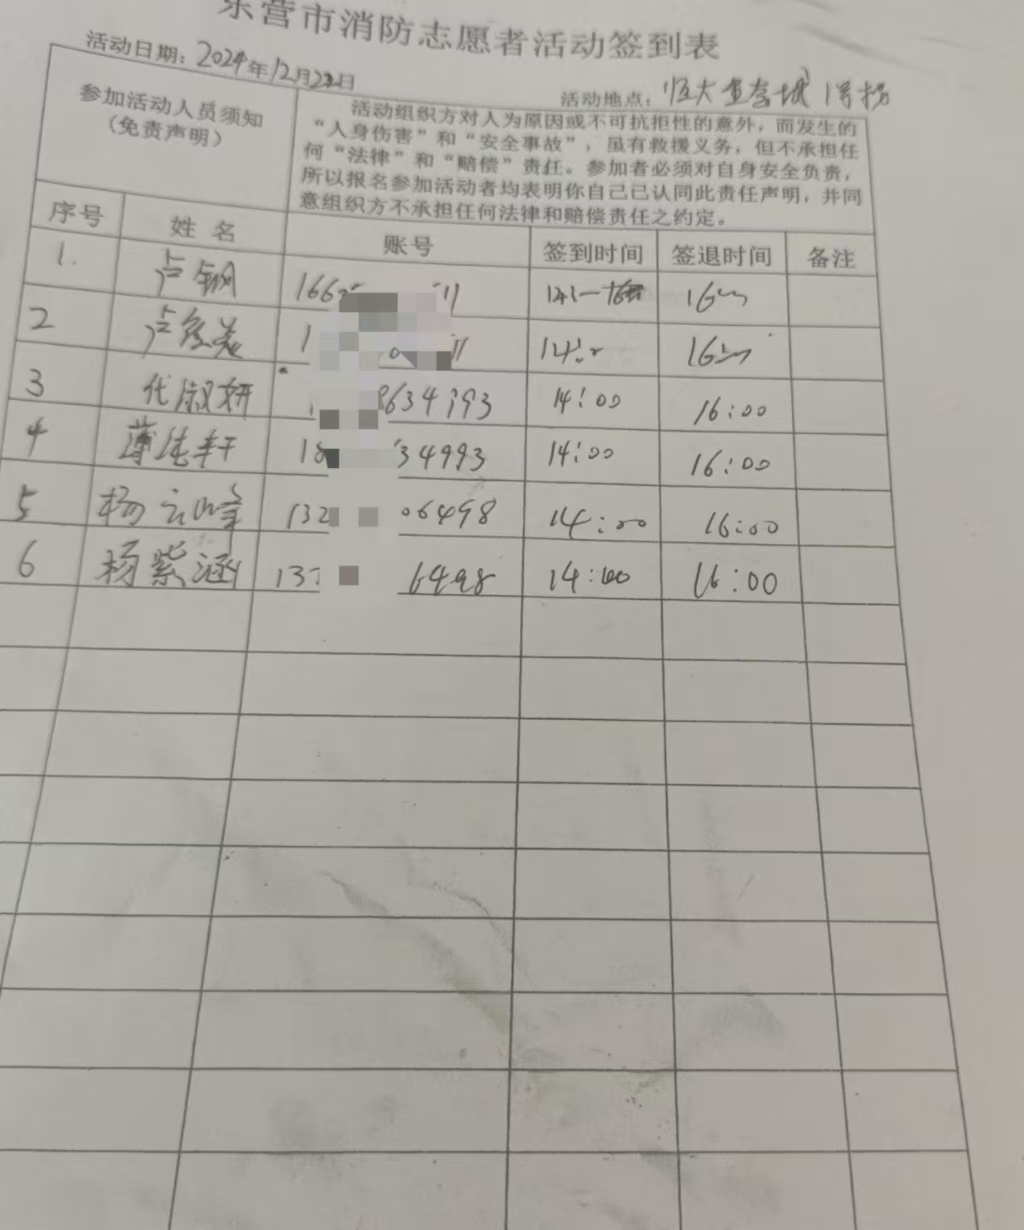 东营市消防志愿者活动签到表
活动日期：2024年12月22日
活动地点：恒大 城 1号
参加活动人员须知
（免责声明）
活动组织方对人为原因或不可抗拒性的意外，而发生的
“人身伤害”和“安全事故”，虽有救援义务，但不承担任
何“法律”和“赔偿”责任。参加者必须对自身安全负责，
所以报名参加活动者均表明你自己已认同此责任声明，并同
意组织方不承担任何法律和赔偿责任之约定。
序号 姓名 账号 签到时间 签退时间 备注
1. 卢钢 166 11
2 卢 1 11 14:
3 代淑妍 8634993 14:00 16:00
4 薄纯轩 18 34993 14:00 16:00
5 杨云峰 132 06498 14:00 16:00
6 杨紫涵 13 6498 14:00 16:00